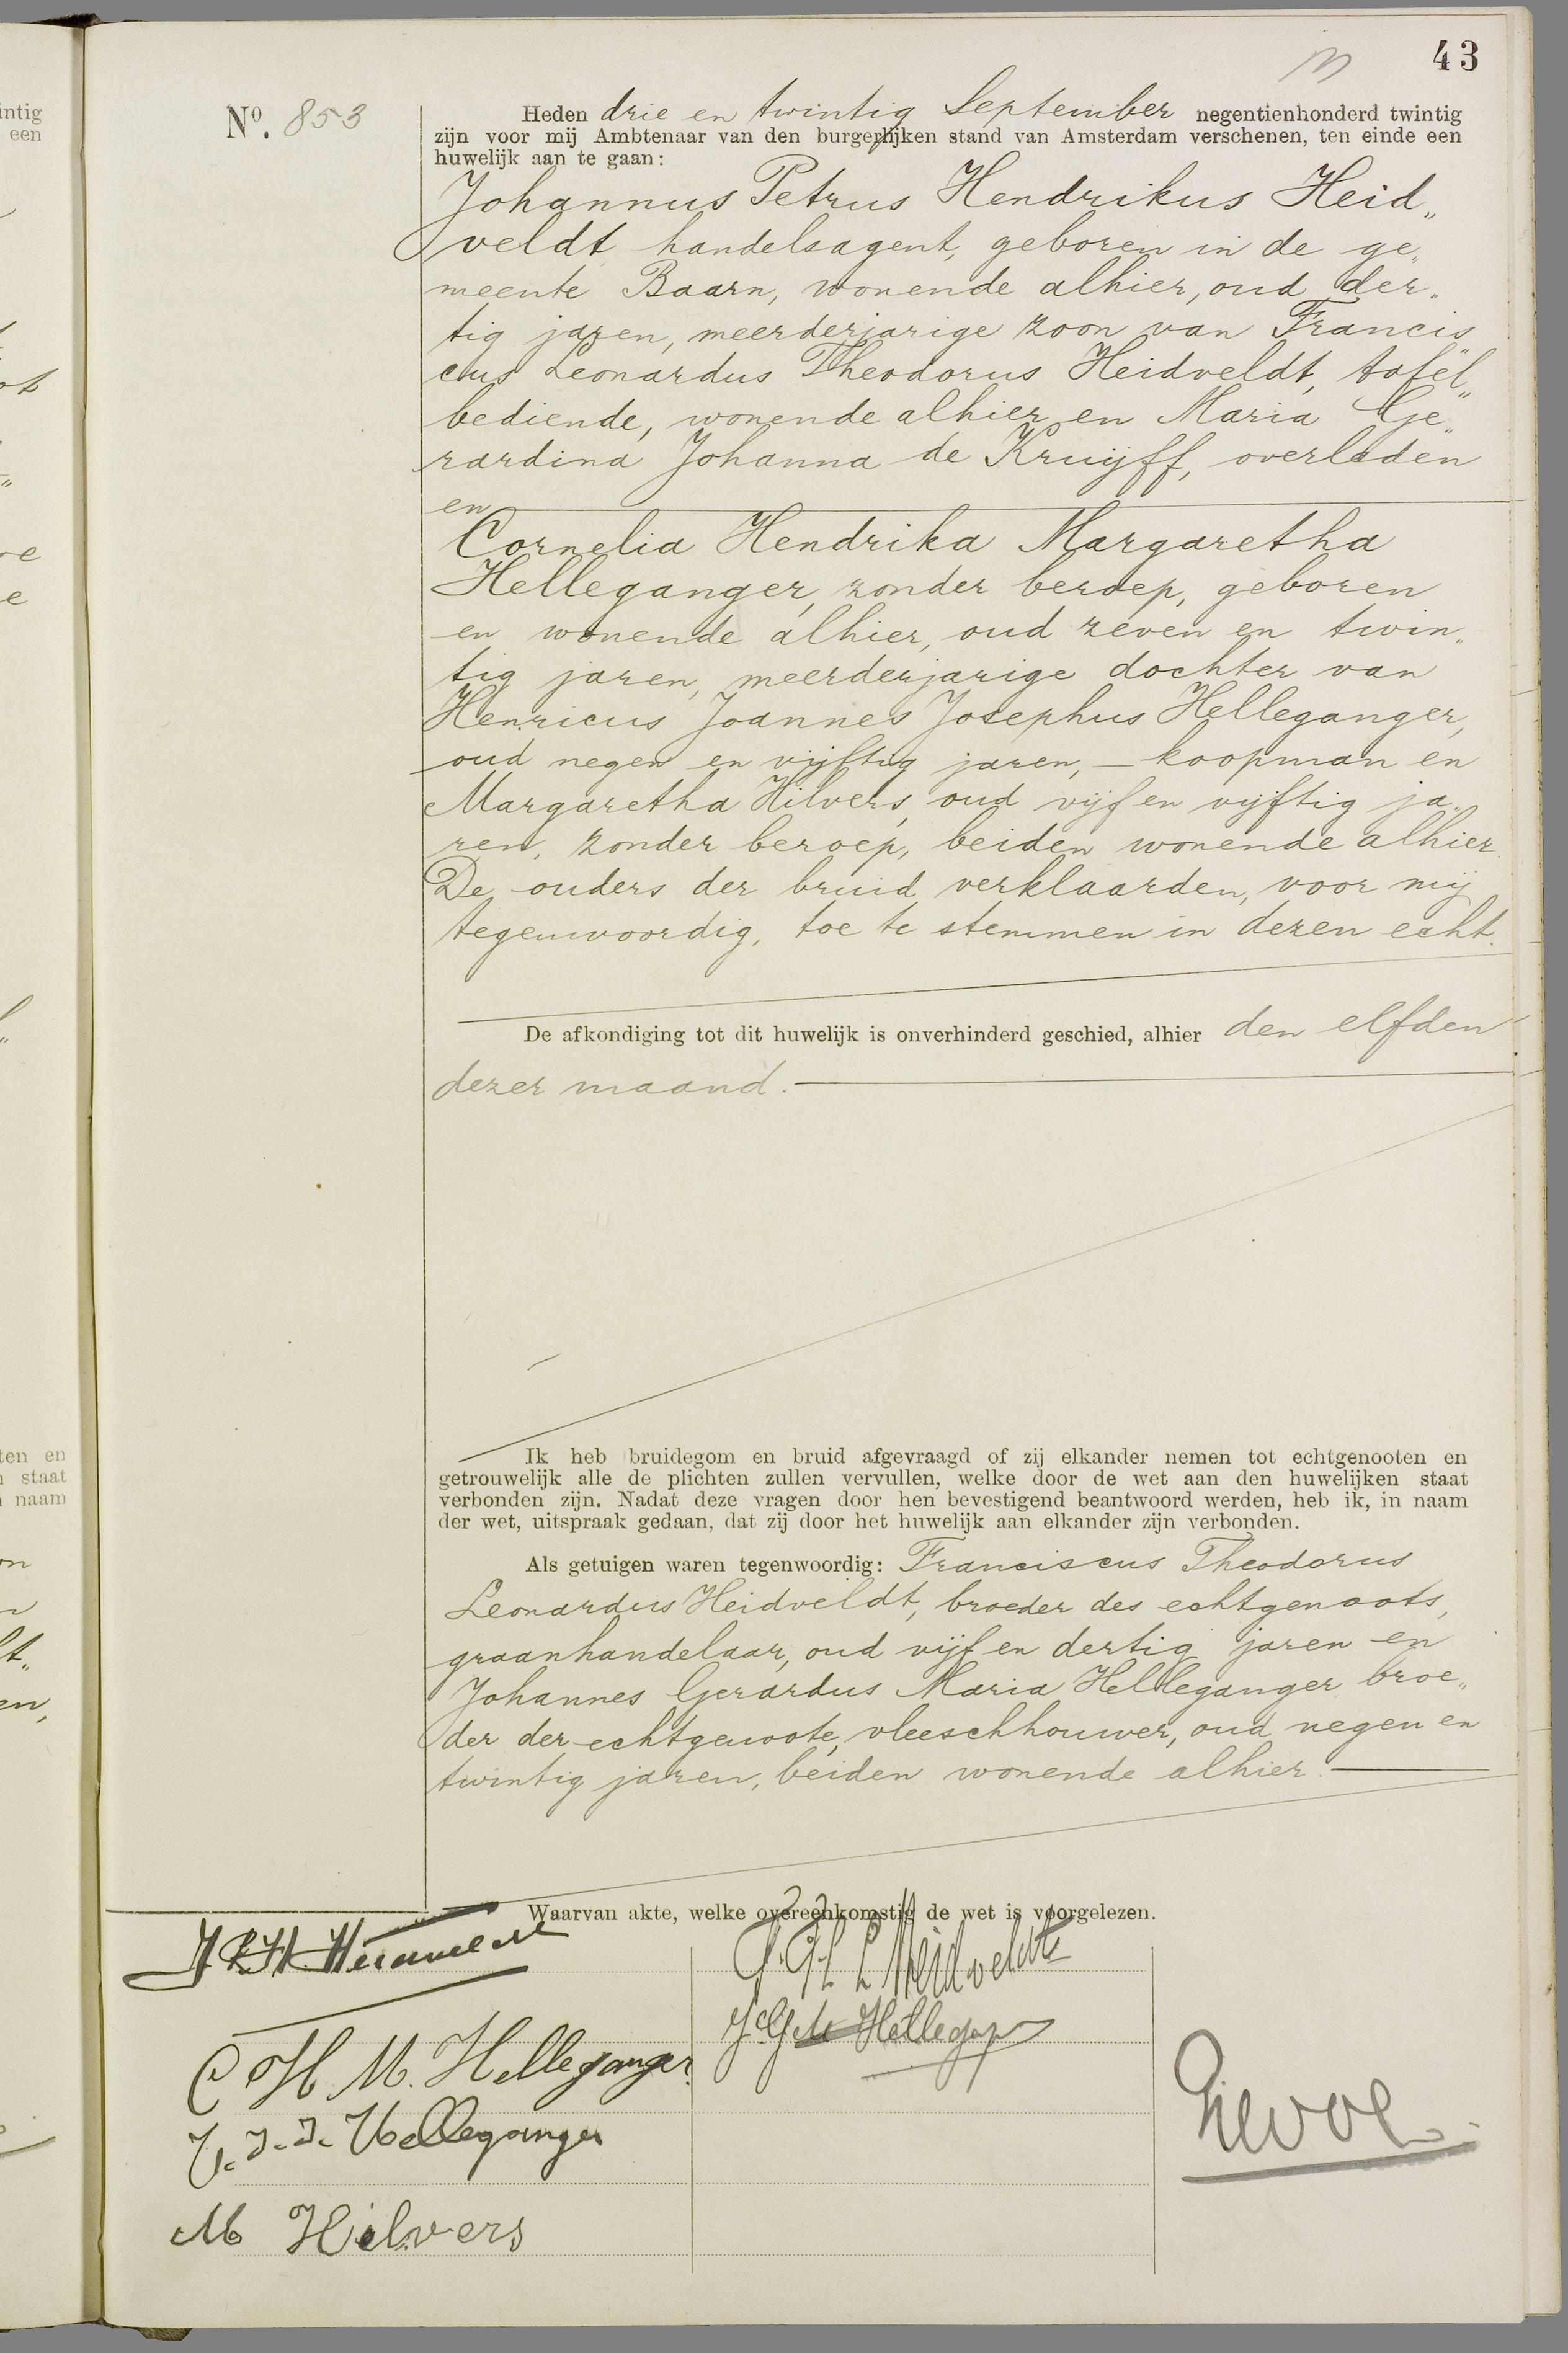 43
No. 853
Heden drie en twintig September negentienhonderd twintig
zijn voor mij Ambtenaar van den burgerlijken stand van Amsterdam verschenen, ten einde een
huwelijk aan te gaan:
Johannus Petrus Hendrikus Heid„
veldt, handelsagent, geboren in de ge„
meente Baarn, wonende alhier, oud der„
tig jaren, meerderjarige zoon van Francis„
cus Leonardus Theodorus Heidveldt, tafel„
bediende, wonende alhier en Maria Ge„
rardina Johanna de Kruijff, overleden
en
Cornelia Hendrika Margaretha
Helleganger, zonder beroep, geboren
en wonende alhier, oud zeven en twin„
tig jaren, meerderjarige dochter van
Henricus Joannes Josephus Helleganger,
oud negen en vijftig jaren, — koopman en
Margaretha Hilvers, oud vijf en vijftig ja„
ren, zonder beroep, beiden wonende alhier.
De ouders der bruid verklaarden, voor mij
tegenwoordig, toe te stemmen in dezen echt.
De afkondiging tot dit huwelijk is onverhinderd geschied, alhier den elfden
dezer maand.
Ik heb bruidegom en bruid afgevraagd of zij elkander nemen tot echtgenooten en
getrouwelijk alle de plichten zullen vervullen, welke door de wet aan den huwelijken staat
verbonden zijn. Nadat deze vragen door hen bevestigend beantwoord werden, heb ik, in naam
der wet, uitspraak gedaan, dat zij door het huwelijk aan elkander zijn verbonden.
Als getuigen waren tegenwoordig: Franciscus Theodorus
Leonardus Heidveldt, broeder des echtgenoots,
graanhandelaar, oud vijf en dertig jaren en
Johannes Gerardus Maria Helleganger broe„
der der echtgenoote, vleeschhouwer, oud negen en
twintig jaren, beiden wonende alhier.
Waarvan akte, welke overeenkomstig de wet is voorgelezen.
C H M. Helleganger
H. J. J. Helleganger
M Hilvers
intig
een
ten en
staat
naam